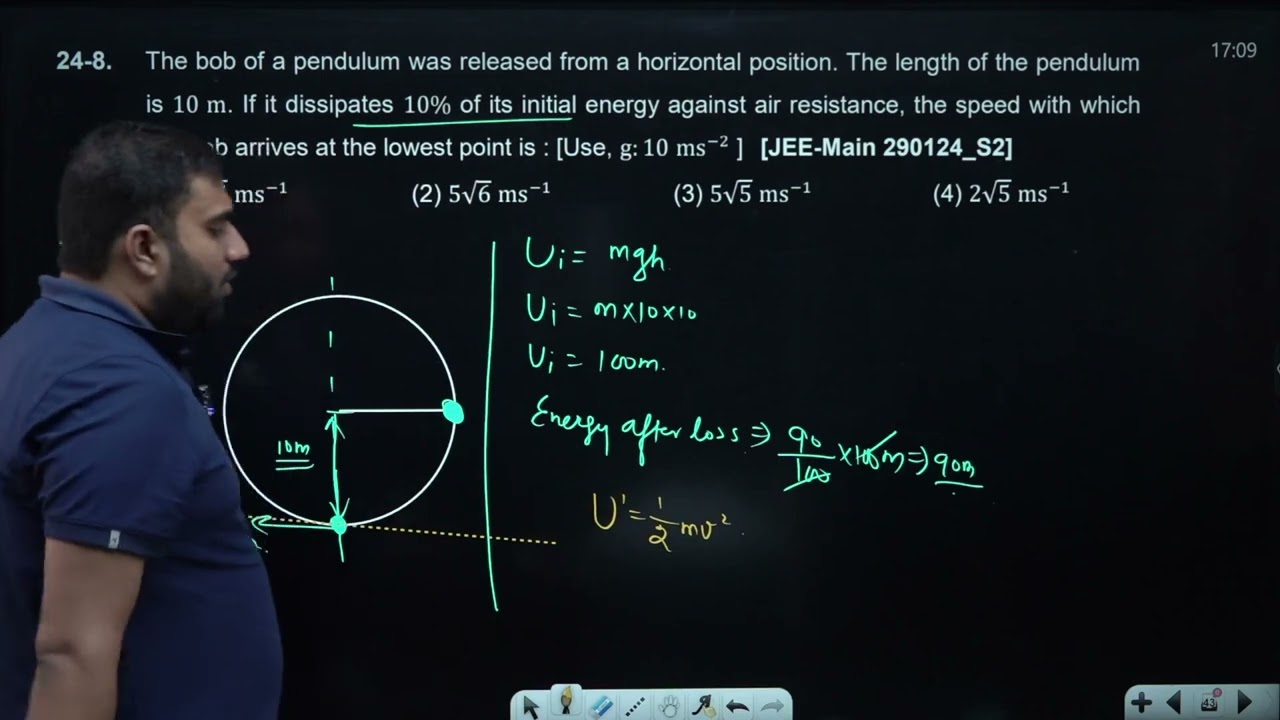 17:09
24-8. The bob of a pendulum was released from a horizontal position. The length of the pendulum
is 10 m. If it dissipates 10% of its initial energy against air resistance, the speed with which
arrives at the lowest point is : [Use, g: 10 ms⁻² ] [JEE-Main 290124_S2]
ms⁻¹ (2) 5√6 ms⁻¹ (3) 5√5 ms⁻¹ (4) 2√5 ms⁻¹
Ui = mgh
Ui = m×10×10
Ui = 100m.
Energy after loss ⇒ 90/100 ×100m ⇒ 90m
10m
U' = 1/2 mv²
43